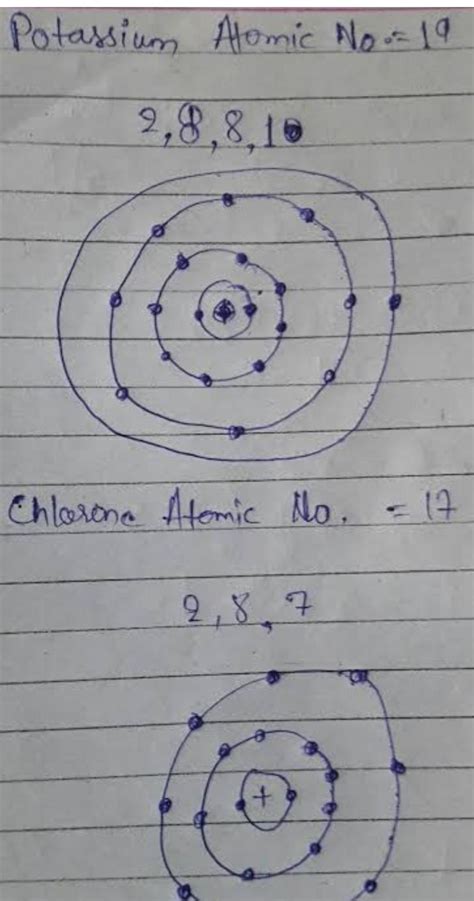 Potassium Atomic No. = 19
2,8,8,1
Chlorone Atomic No. = 17
2,8,7
+